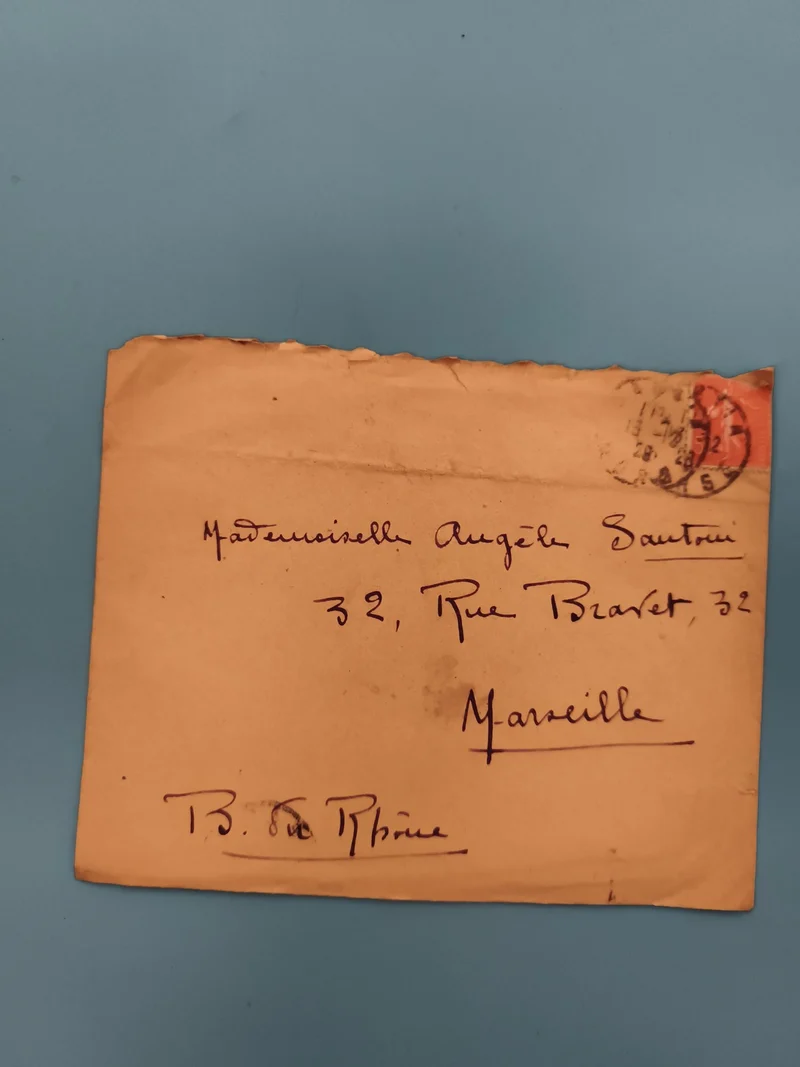 28 28
Mademoiselle Angèle Santoni
32, Rue Bravet, 32
Marseille
B. du Rhône